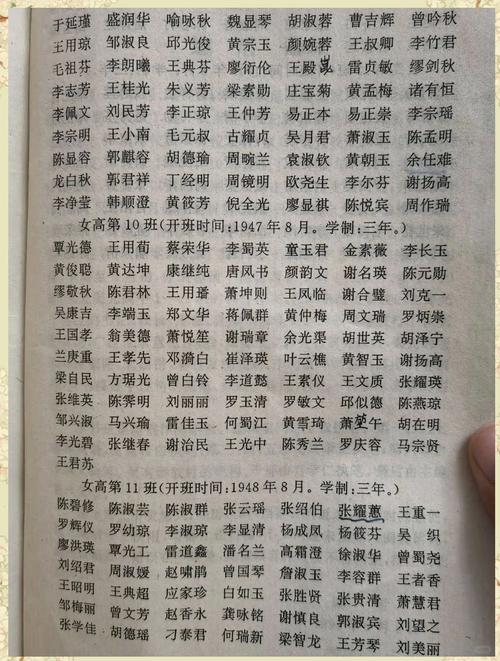 于延瑾 盛润华 喻咏秋 魏显琴 胡淑蓉 曹吉辉 曾吟秋
王用琼 邹淑良 邱光俊 黄宗玉 颜婉蓉 王叔卿 李竹君
毛祖芬 李朗曦 王典芬 廖衍伦 王殿崑 雷贞敏 缪剑秋
李志芳 王桂光 朱义芳 梁素勋 庄宝菊 黄孟梅 诸有恒
李佩文 刘民芳 李正琼 王仲芳 易正本 易正崇 李宗瑶
李宗明 王小南 毛元叔 古耀贞 吴月君 萧淑玉 陈孟明
陈显容 郭麒容 胡德瑜 周畹兰 袁淑钦 黄朝玉 余任难
龙白秋 郭君祥 丁经明 周镜明 欧尧生 李尔芬 谢扬高
李净莹 韩顺澄 黄筱芳 倪全光 廖显祺 陈悦宾 周作瑞
女高第10班(开班时间:1947年8月。学制:三年。)
覃光德 王用荀 蔡荣华 李蜀英 童玉君 金素薇 李长玉
黄俊聪 黄达坤 康继纯 唐凤书 颜韵文 谢名瑛 陈元勋
缪敬秋 陈君林 王用璠 萧坤则 王凤临 谢合璧 刘克一
吴康吉 李端玉 郑文华 蒋佩群 黄仲梅 周文瑞 罗炳崇
王国孝 翁美德 萧悦笙 谢瑞章 余光渠 胡世英 胡泽宁
兰庚重 王孝先 邓漪白 崔泽瑛 叶云樵 黄智玉 谢扬高
梁自民 方琚光 曾白铃 李道懿 王素仪 王文质 张耀英
张维英 陈霁明 刘丽丽 罗玉清 罗敏文 邱似德 陈燕琼
邹兴淑 马兴瑜 雷佳玉 何蜀江 黄雪琦 萧堃午 胡在明
李光碧 张继春 谢治民 王光中 陈秀兰 罗庆容 马宗贤
王君苏
女高第11班(开班时间:1948年8月。学制:三年。)
陈碧修 陈淑芸 陈淑群 张云瑶 张绍伯 张耀蕙 王重一
罗辉仪 罗幼琼 李淑琼 李显清 杨成凤 杨筱芬 吴织
廖洪瑛 覃光工 雷道鑫 潘名兰 高霜澄 徐淑华 曾蜀尧
刘绍君 周淑媛 赵啸鹃 曾国琴 詹淑玉 李容群 王者香
王昭明 王典超 应家珍 白如玉 张胜贤 张贵清 萧慧君
邹梅丽 曾文芳 赵香永 龚咏铭 谢慎良 郭淑宾 刘望之
张学佳 胡德瑶 刁泰君 何瑞新 梁智龙 王芳琴 刘美丽